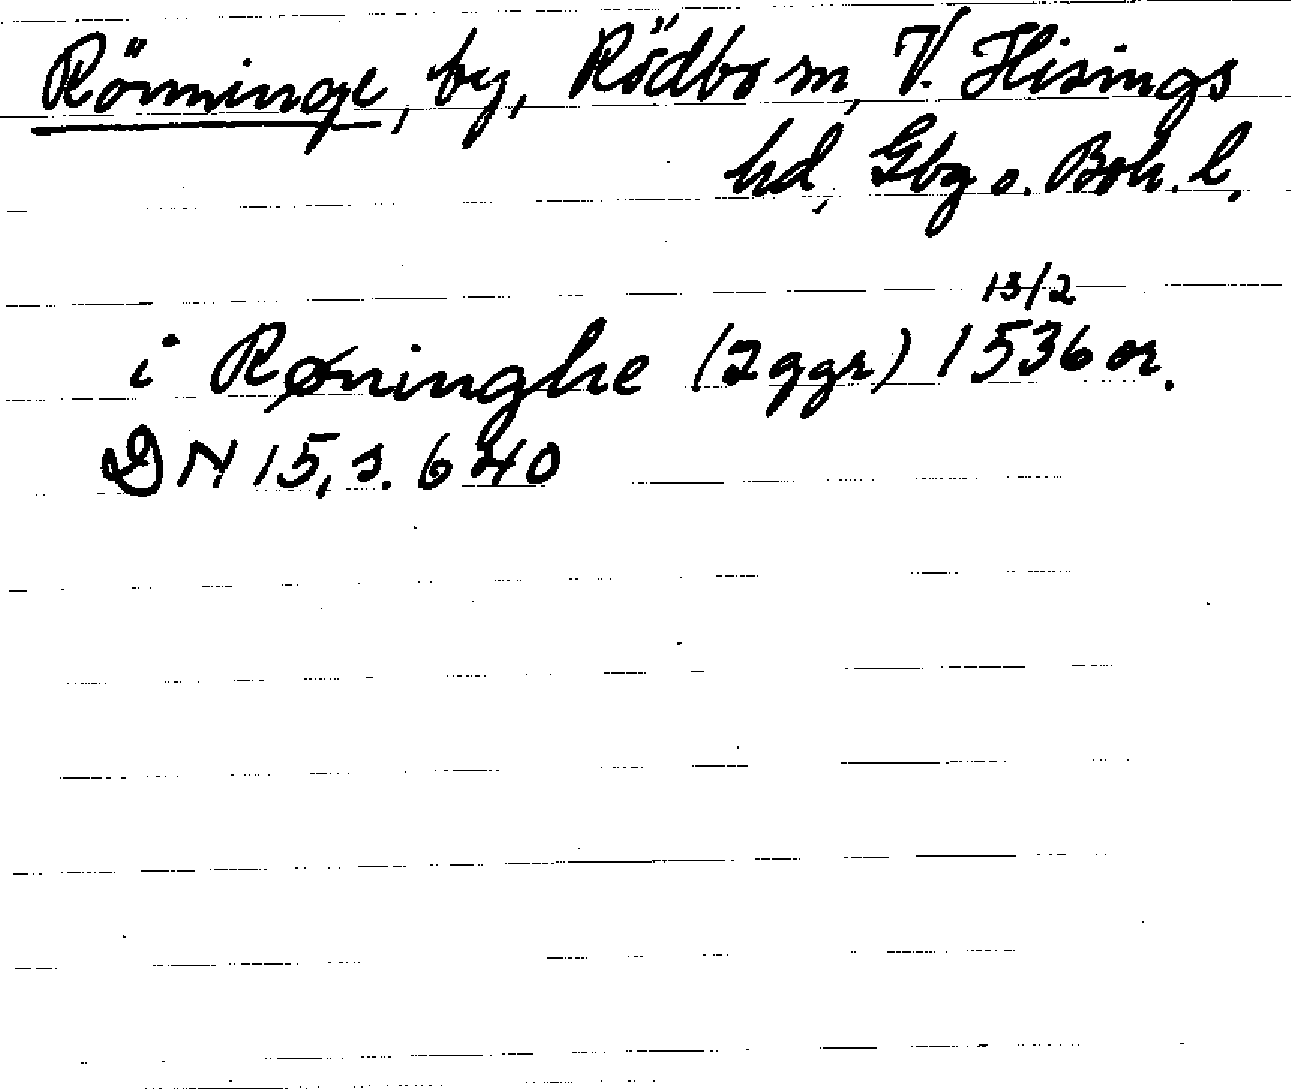 Rönninge, by, Rödbo sn, V. Hisings
hd, Gbg o. Boh. l.
i Røninghe (2 ggr) 13/2 1536 or.
DN 15, s. 640